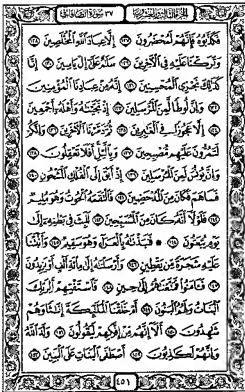 الجزء الثالث والعشرون ٣٧ سورة الصافات
فَكَذَّبُوهُ فَإِنَّهُمْ لَمُحْضَرُونَ ١٢٧ إِلَّا عِبَادَ اللَّهِ الْمُخْلَصِينَ ١٢٨
وَتَرَكْنَا عَلَيْهِ فِي الْآخِرِينَ ١٢٩ سَلَٰمٌ عَلَىٰ إِلْ يَاسِينَ ١٣٠ إِنَّا
كَذَٰلِكَ نَجْزِي الْمُحْسِنِينَ ١٣١ إِنَّهُ مِنْ عِبَادِنَا الْمُؤْمِنِينَ ١٣٢
وَإِنَّ لُوطًا لَّمِنَ الْمُرْسَلِينَ ١٣٣ إِذْ نَجَّيْنَٰهُ وَأَهْلَهُ أَجْمَعِينَ ١٣٤
إِلَّا عَجُوزًا فِي الْغَٰبِرِينَ ١٣٥ ثُمَّ دَمَّرْنَا الْآخَرِينَ ١٣٦ وَإِنَّكُمْ
لَتَمُرُّونَ عَلَيْهِم مُّصْبِحِينَ ١٣٧ وَبِاللَّيْلِ أَفَلَا تَعْقِلُونَ ١٣٨
وَإِنَّ يُونُسَ لَمِنَ الْمُرْسَلِينَ ١٣٩ إِذْ أَبَقَ إِلَى الْفُلْكِ الْمَشْحُونِ ١٤٠
فَسَاهَمَ فَكَانَ مِنَ الْمُدْحَضِينَ ١٤١ فَالْتَقَمَهُ الْحُوتُ وَهُوَ مُلِيمٌ ١٤٢
فَلَوْلَا أَنَّهُ كَانَ مِنَ الْمُسَبِّحِينَ ١٤٣ لَلَبِثَ فِي بَطْنِهِ إِلَىٰ
يَوْمِ يُبْعَثُونَ ١٤٤ فَنَبَذْنَٰهُ بِالْعَرَاءِ وَهُوَ سَقِيمٌ ١٤٥ وَأَنبَتْنَا
عَلَيْهِ شَجَرَةً مِّن يَقْطِينٍ ١٤٦ وَأَرْسَلْنَٰهُ إِلَىٰ مِائَةِ أَلْفٍ أَوْ يَزِيدُونَ
١٤٧ فَآمَنُوا فَمَتَّعْنَٰهُمْ إِلَىٰ حِينٍ ١٤٨ فَاسْتَفْتِهِمْ أَلِرَبِّكَ
الْبَنَاتُ وَلَهُمُ الْبَنُونَ ١٤٩ أَمْ خَلَقْنَا الْمَلَٰئِكَةَ إِنَٰثًا وَهُمْ
شَٰهِدُونَ ١٥٠ أَلَا إِنَّهُم مِّنْ إِفْكِهِمْ لَيَقُولُونَ ١٥١ وَلَدَ اللَّهُ
وَإِنَّهُمْ لَكَٰذِبُونَ ١٥٢ أَصْطَفَى الْبَنَاتِ عَلَى الْبَنِينَ ١٥٣
٤٥١